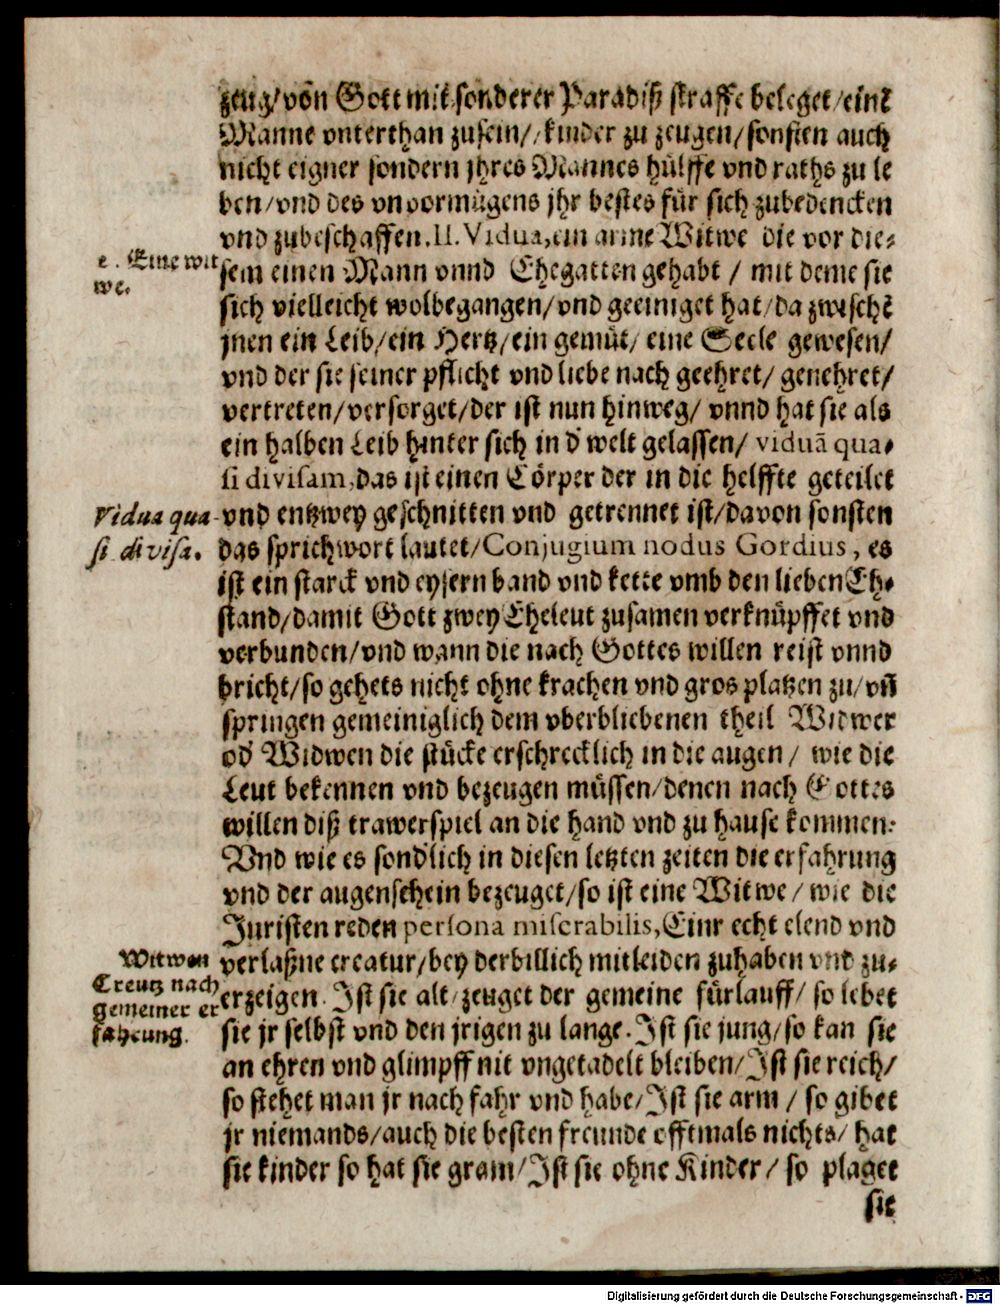 zeug/von Gott mit sonderer Paradiß straffe beleget/einē
Manne vnterthan zusein/kinder zu zeugen/sonsten auch
nicht eigner sondern jhres Mannes hülffe vnd raths zu le
ben/vnd des vnvormügens jhr bestes für sich zubedencken
vnd zubeschaffen. II. Vidua, ein arme Witwe die vor die⸗
2. Eine wit
we.
sem einen Mann vnnd Ehegatten gehabt / mit deme sie
sich vielleicht wolbegangen/vnd geeiniget hat/da zwischē
jnen ein Leib/ein Hertz/ein gemüt/ eine Seele gewesen/
vnd der sie seiner pflicht vnd liebe nach geehret/ genehret/
vertreten/versorget/der ist nun hinweg/ vnnd hat sie als
ein halben Leib hinter sich in d' welt gelassen/ viduā qua⸗
si divisam, das ist einen Cörper der in die helffte geteilet
Vidua qua
si divisa.
vnd entzwey geschnitten vnd getrennet ist/davon sonsten
das sprichwort lautet/Conjugium nodus Gordius, es
ist ein starck vnd eysern band vnd kette vmb den lieben Eh⸗
stand/damit Gott zwey Eheleut zusamen verknüpffet vnd
verbunden/vnd wann die nach Gottes willen reist vnnd
bricht/so gehets nicht ohne krachen vnd gros platzen zu/vn̄
springen gemeiniglich dem vberbliebenen theil Widwer
od' Widwen die stücke erschrecklich in die augen / wie die
Leut bekennen vnd bezeugen müssen/denen nach Gottes
willen diß trawerspiel an die hand vnd zu hause kommen.
Vnd wie es sond'lich in diesen letzten zeiten die erfahrung
vnd der augenschein bezeuget/so ist eine Witwe / wie die
Juristen reden persona miserabilis, Einr echt elend vnd
Witwen
Creutz nach
gemeiner er
fahrung.
verlaßne creatur/bey der billich mitleiden zuhaben vnd zu⸗
erzeigen. Ist sie alt/zeuget der gemeine fürlauff/ so lebet
sie jr selbst vnd den jrigen zu lange. Ist sie jung/so kan sie
an ehren vnd glimpff nit vngetadelt bleiben/Ist sie reich/
so stehet man jr nach fahr vnd habe/Ist sie arm / so gibet
jr niemands/auch die besten freunde offtmals nichts/ hat
sie kinder so hat sie gram/Ist sie ohne Kinder/ so plaget
sie
Digitalisierung gefördert durch die Deutsche Forschungsgemeinschaft - DFG